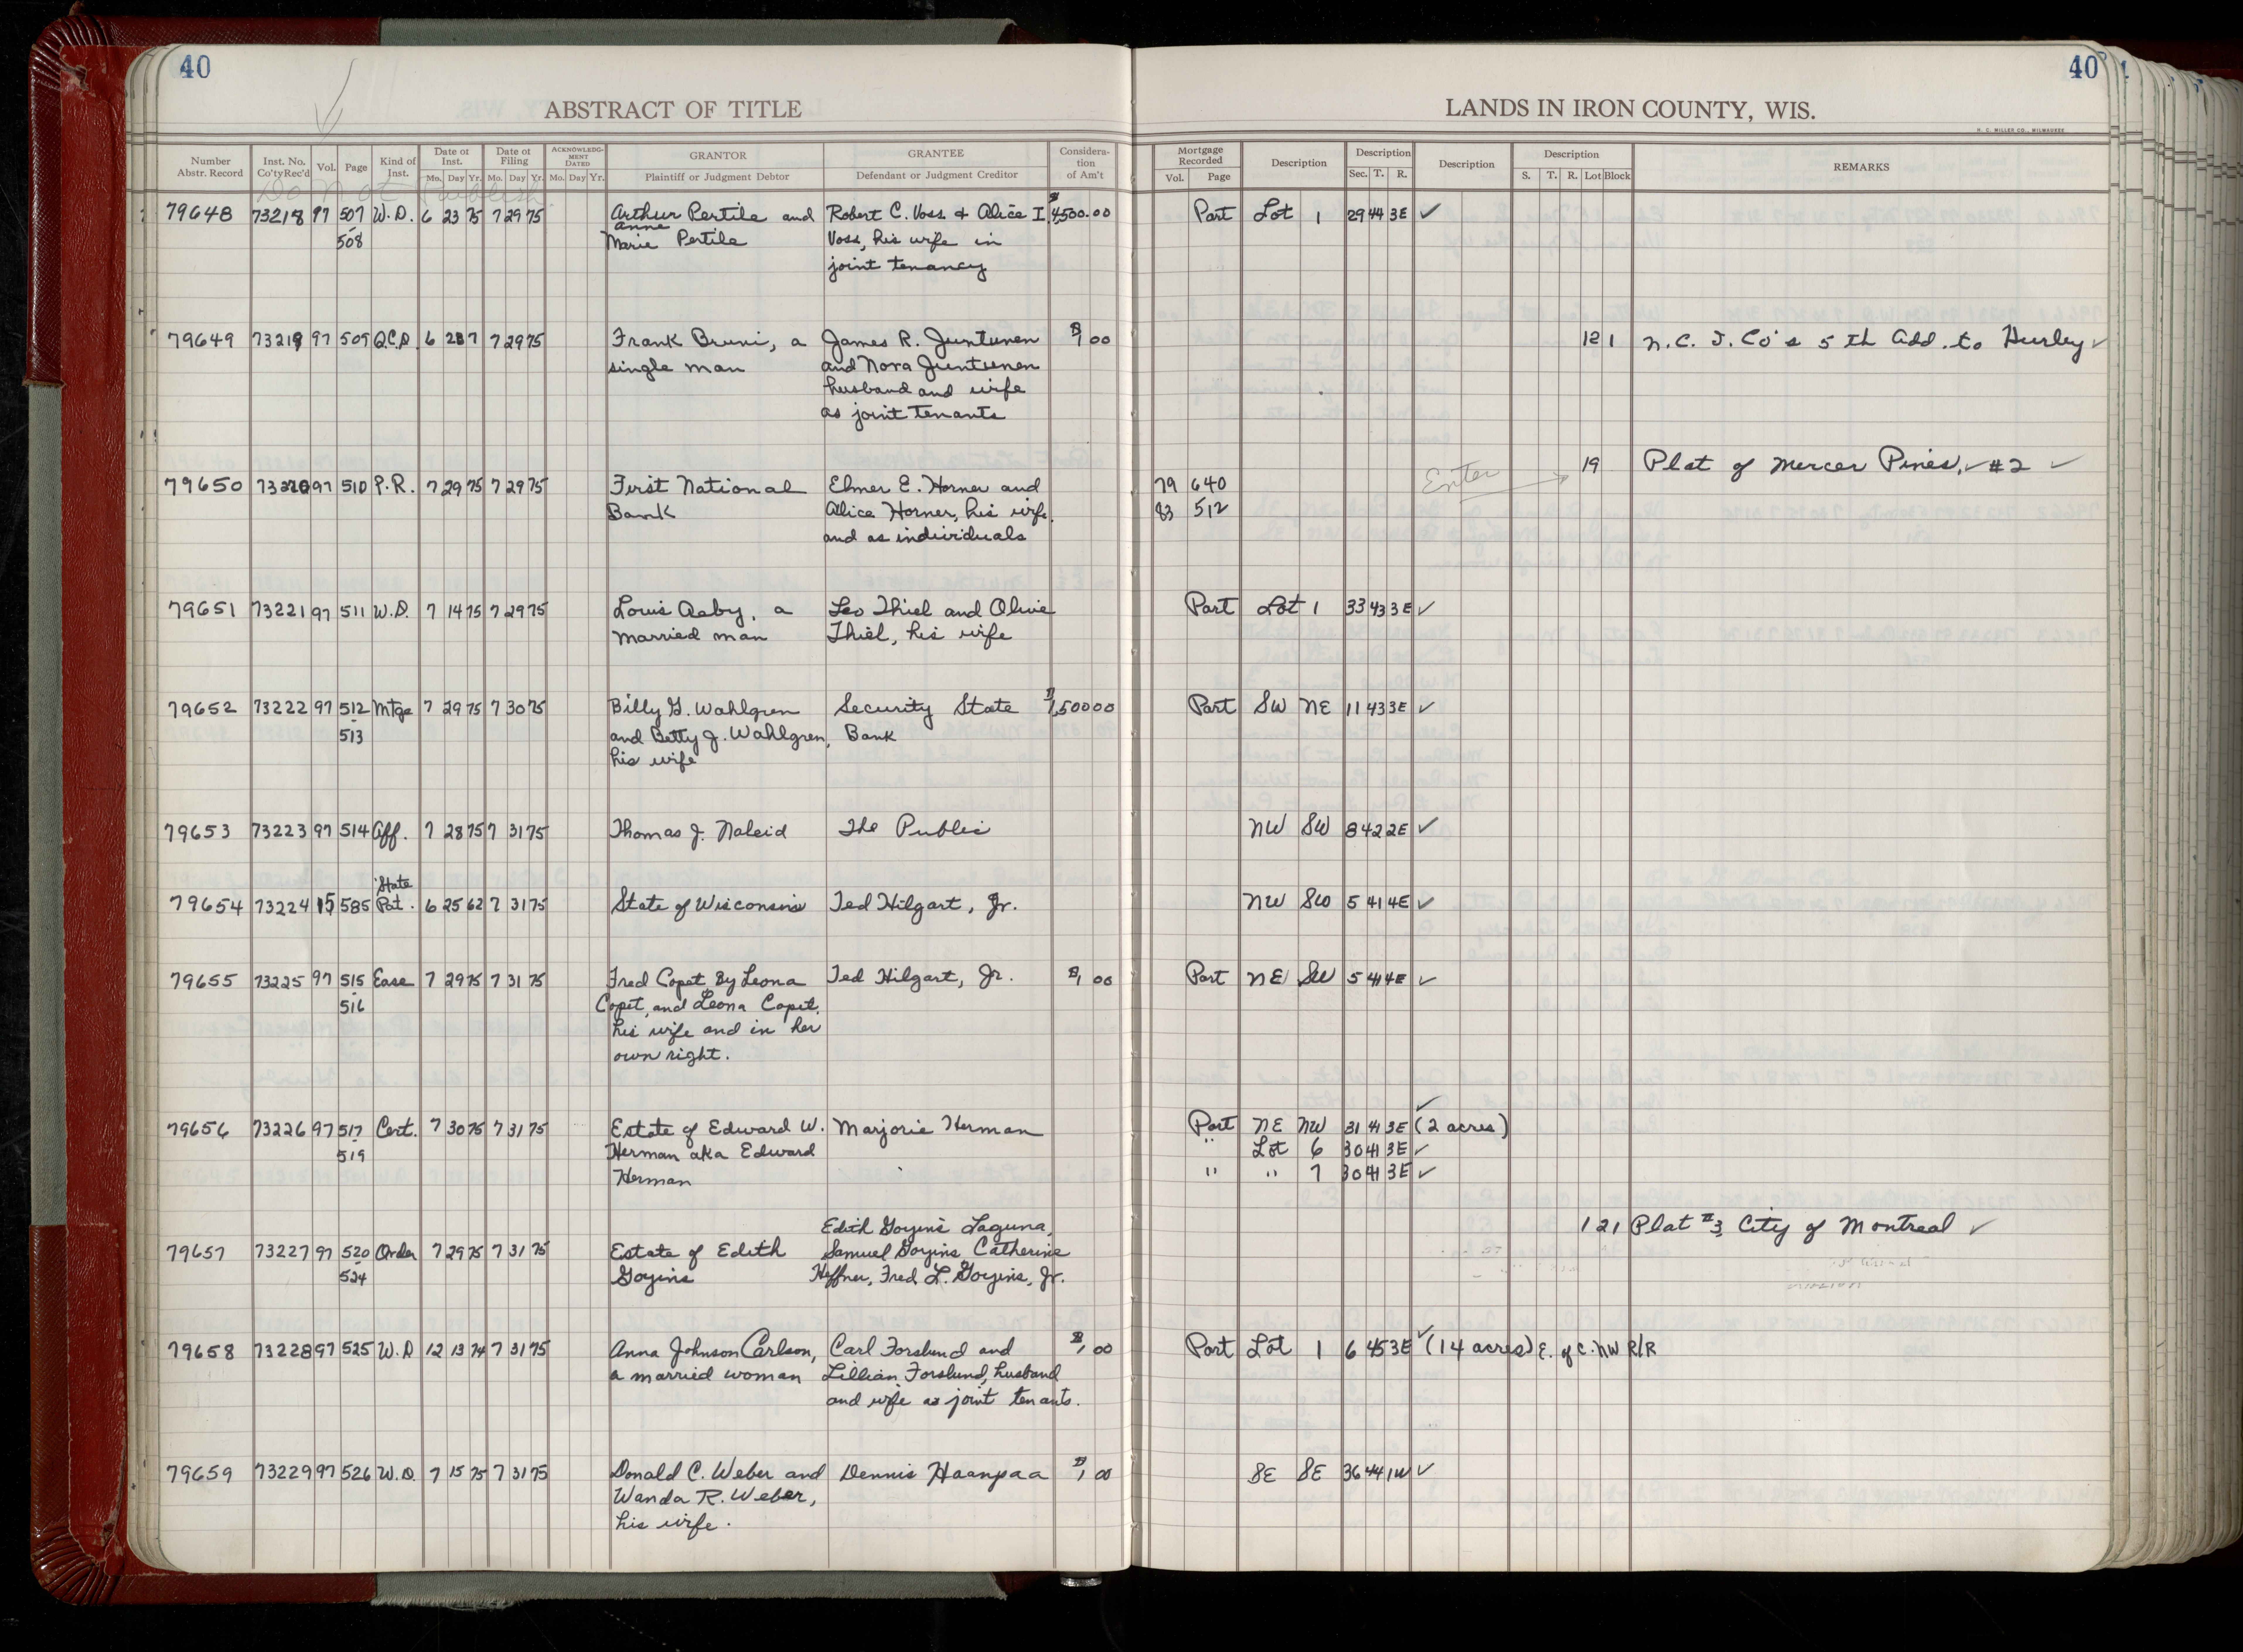 40
40
ABSTRACT OF TITLE
LANDS IN IRON COUNTY, WIS.
H. C. MILLER CO., MILWAUKEE
Number Abstr. Record Inst. No. Co'ty Rec'd Vol. Page Kind of Inst. Date of Inst. Mo. Day Yr. Date of Filing Mo. Day Yr. ACKNOWLEDGMENT DATED Mo. Day Yr. GRANTOR Plaintiff or Judgment Debtor GRANTEE Defendant or Judgment Creditor Consideration of Am't Mortgage Recorded Vol. Page Description Description Sec. T. R. Description Description S. T. R. Lot Block REMARKS
Do Not Publish
79648 73218 97 507 W.D. 6 23 75 7 29 75 Arthur Pertile and Robert C. Voss & Alice I. $4,500.00 Part Lot 1 29 44 3E ✓
508 anne Marie Pertile Voss, his wife in
joint tenancy
79649 73219 97 509 Q.C.D. 6 23 7 7 29 75 Frank Bruni, a James R. Juntunen $1 00 12 1 N.C. I. Co's 5th Add. to Hurley ✓
single man and Nora Juntunen
husband and wife
as joint tenants
Enter 19 Plat of Mercer Pines, ✓ #2 ✓
79650 73220 97 510 P.R. 7 29 75 7 29 75 First National Elmer E. Horner and 79 640
Bank Alice Horner, his wife 83 512
and as individuals
79651 73221 97 511 W.D. 7 14 75 7 29 75 Louis Aaby, a Leo Thiel and Olive Part Lot 1 33 43 3E ✓
married man Thiel, his wife
79652 73222 97 512 Mtge 7 29 75 7 30 75 Billy G. Wahlgren Security State $7,500 00 Part SW NE 11 43 3E ✓
- 513 and Betty J. Wahlgren, Bank
his wife
79653 73223 97 514 Aff. 7 28 75 7 31 75 Thomas J. Naleid The Public NW SW 8 42 2E ✓
State
79654 73224 15 585 Pat. 6 25 62 7 31 75 State of Wisconsin Ted Hilgart, Jr. NW SW 5 41 4E ✓
79655 73225 97 515 Ease 7 29 75 7 31 75 Fred Copet By Leona Ted Hilgart, Jr. $1 00 Part NE SW 5 41 4E ✓
- 516 Copet, and Leona Copet,
his wife and in her
own right.
79656 73226 97 517 Cert. 7 30 75 7 31 75 Estate of Edward W. Marjorie Herman Part NE NW 31 41 3E (2 acres) ✓
519 Herman aka Edward " Lot 6 30 41 3E ✓
Herman " " 7 30 41 3E ✓
Edith Goyins Laguna, 1 21 Plat #3, City of Montreal ✓
79657 73227 97 520 Order 7 29 75 7 31 75 Estate of Edith Samuel Goyins Catherine
- 524 Goyins Heffner, Fred L. Goyins, Jr.
79658 73228 97 525 W.D 12 13 74 7 31 75 Anna Johnson Carlson, Carl Forslund and $1 00 Part Lot 1 6 45 3E ✓ (14 acres) E. of C. NW R/R
a married woman Lillian Forslund, husband
and wife as joint tenants.
79659 73229 97 526 W.D. 7 15 75 7 31 75 Donald C. Weber and Dennis Haanpaa $1 00 SE SE 36 44 1W ✓
Wanda R. Weber,
his wife.